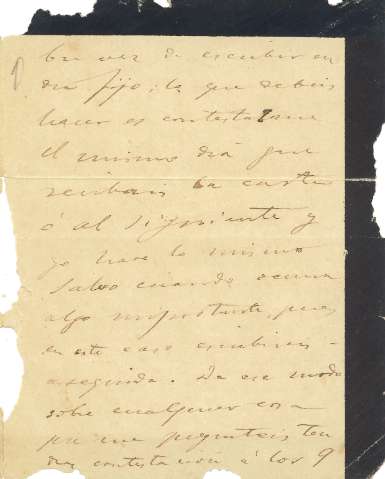 En vez de escribir en
dia fijo; lo que debeis
hacer es contestarme
el mismo dia que
recibais la carta
ó al siguiente y
yo hare lo mismo
salvo cuando ocurra
algo importante, pues
en este caso escribireis
enseguida. De ese modo
sobre cualquier cosa
que me pregunteis ten
dreis contestacion á los 9